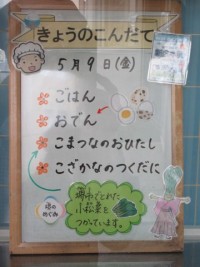 きょうのこんだて
5月9日(金)
ごはん
おでん
こまつなのおひたし
こざかなのつくだに
でとれた
小松菜を
つかっています。